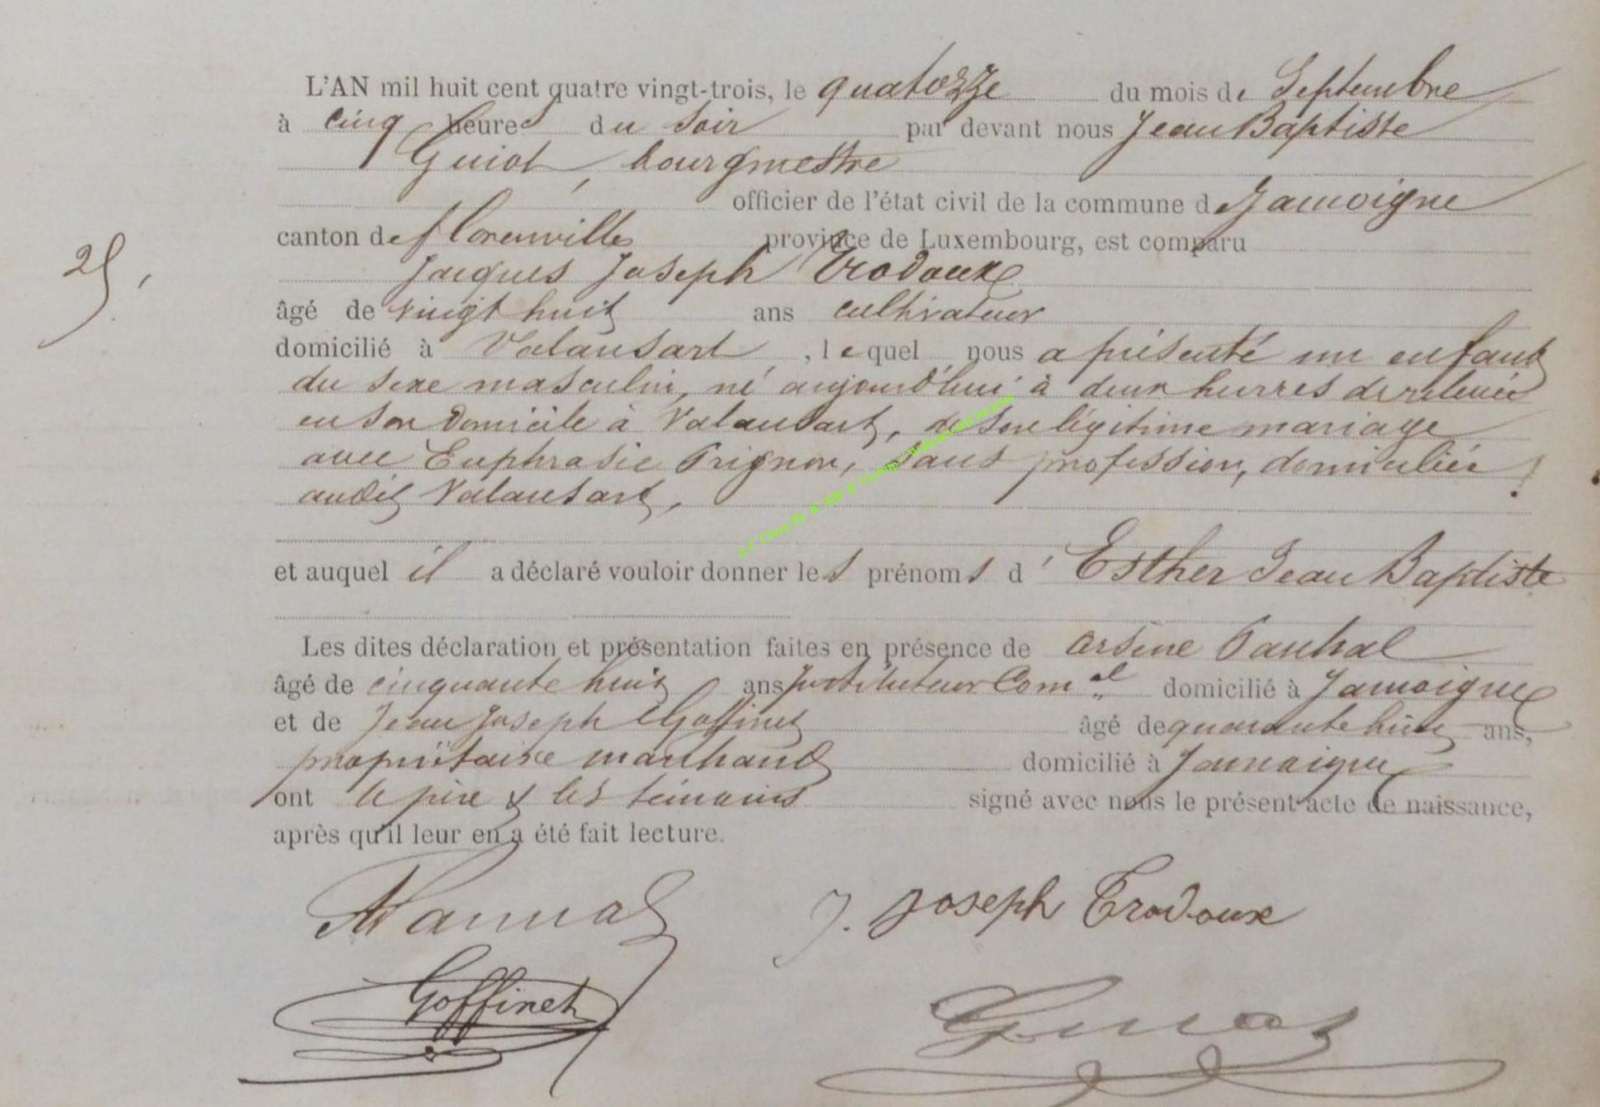 L'AN mil huit cent quatre vingt-trois, le quatozze du mois de Septembre
à cinq heures du soir par devant nous Jean Baptiste
Guiot, bourgmestre
officier de l'état civil de la commune de Jamoigne
canton de florenville province de Luxembourg, est comparu
Jacques Joseph Trodoux
âgé de vingt huit ans cultivateur
domicilié à Valansart, lequel nous a présenté un enfant
25,
du sexe masculin, né aujourd'hui à deux heures de relevée
en son domicile à Valansart, de son légitime mariage
avec Euphrasie Prignon, sans profession, domiciliée
audit Valansart,
et auquel il a déclaré vouloir donner les prénoms d' Esther Jean Baptiste
Les dites déclaration et présentation faites en présence de Arsène
âgé de cinquante huit ans Instituteur Com.al domicilié à Jamoigne
et de Jean Joseph Goffinet âgé de quarante huit ans,
propriétaire marchand domicilié à Jamoigne
ont le père & les témoins signé avec nous le présent acte de naissance,
après qu'il leur en a été fait lecture.
J. Joseph Trodoux
Goffinet
Guiot